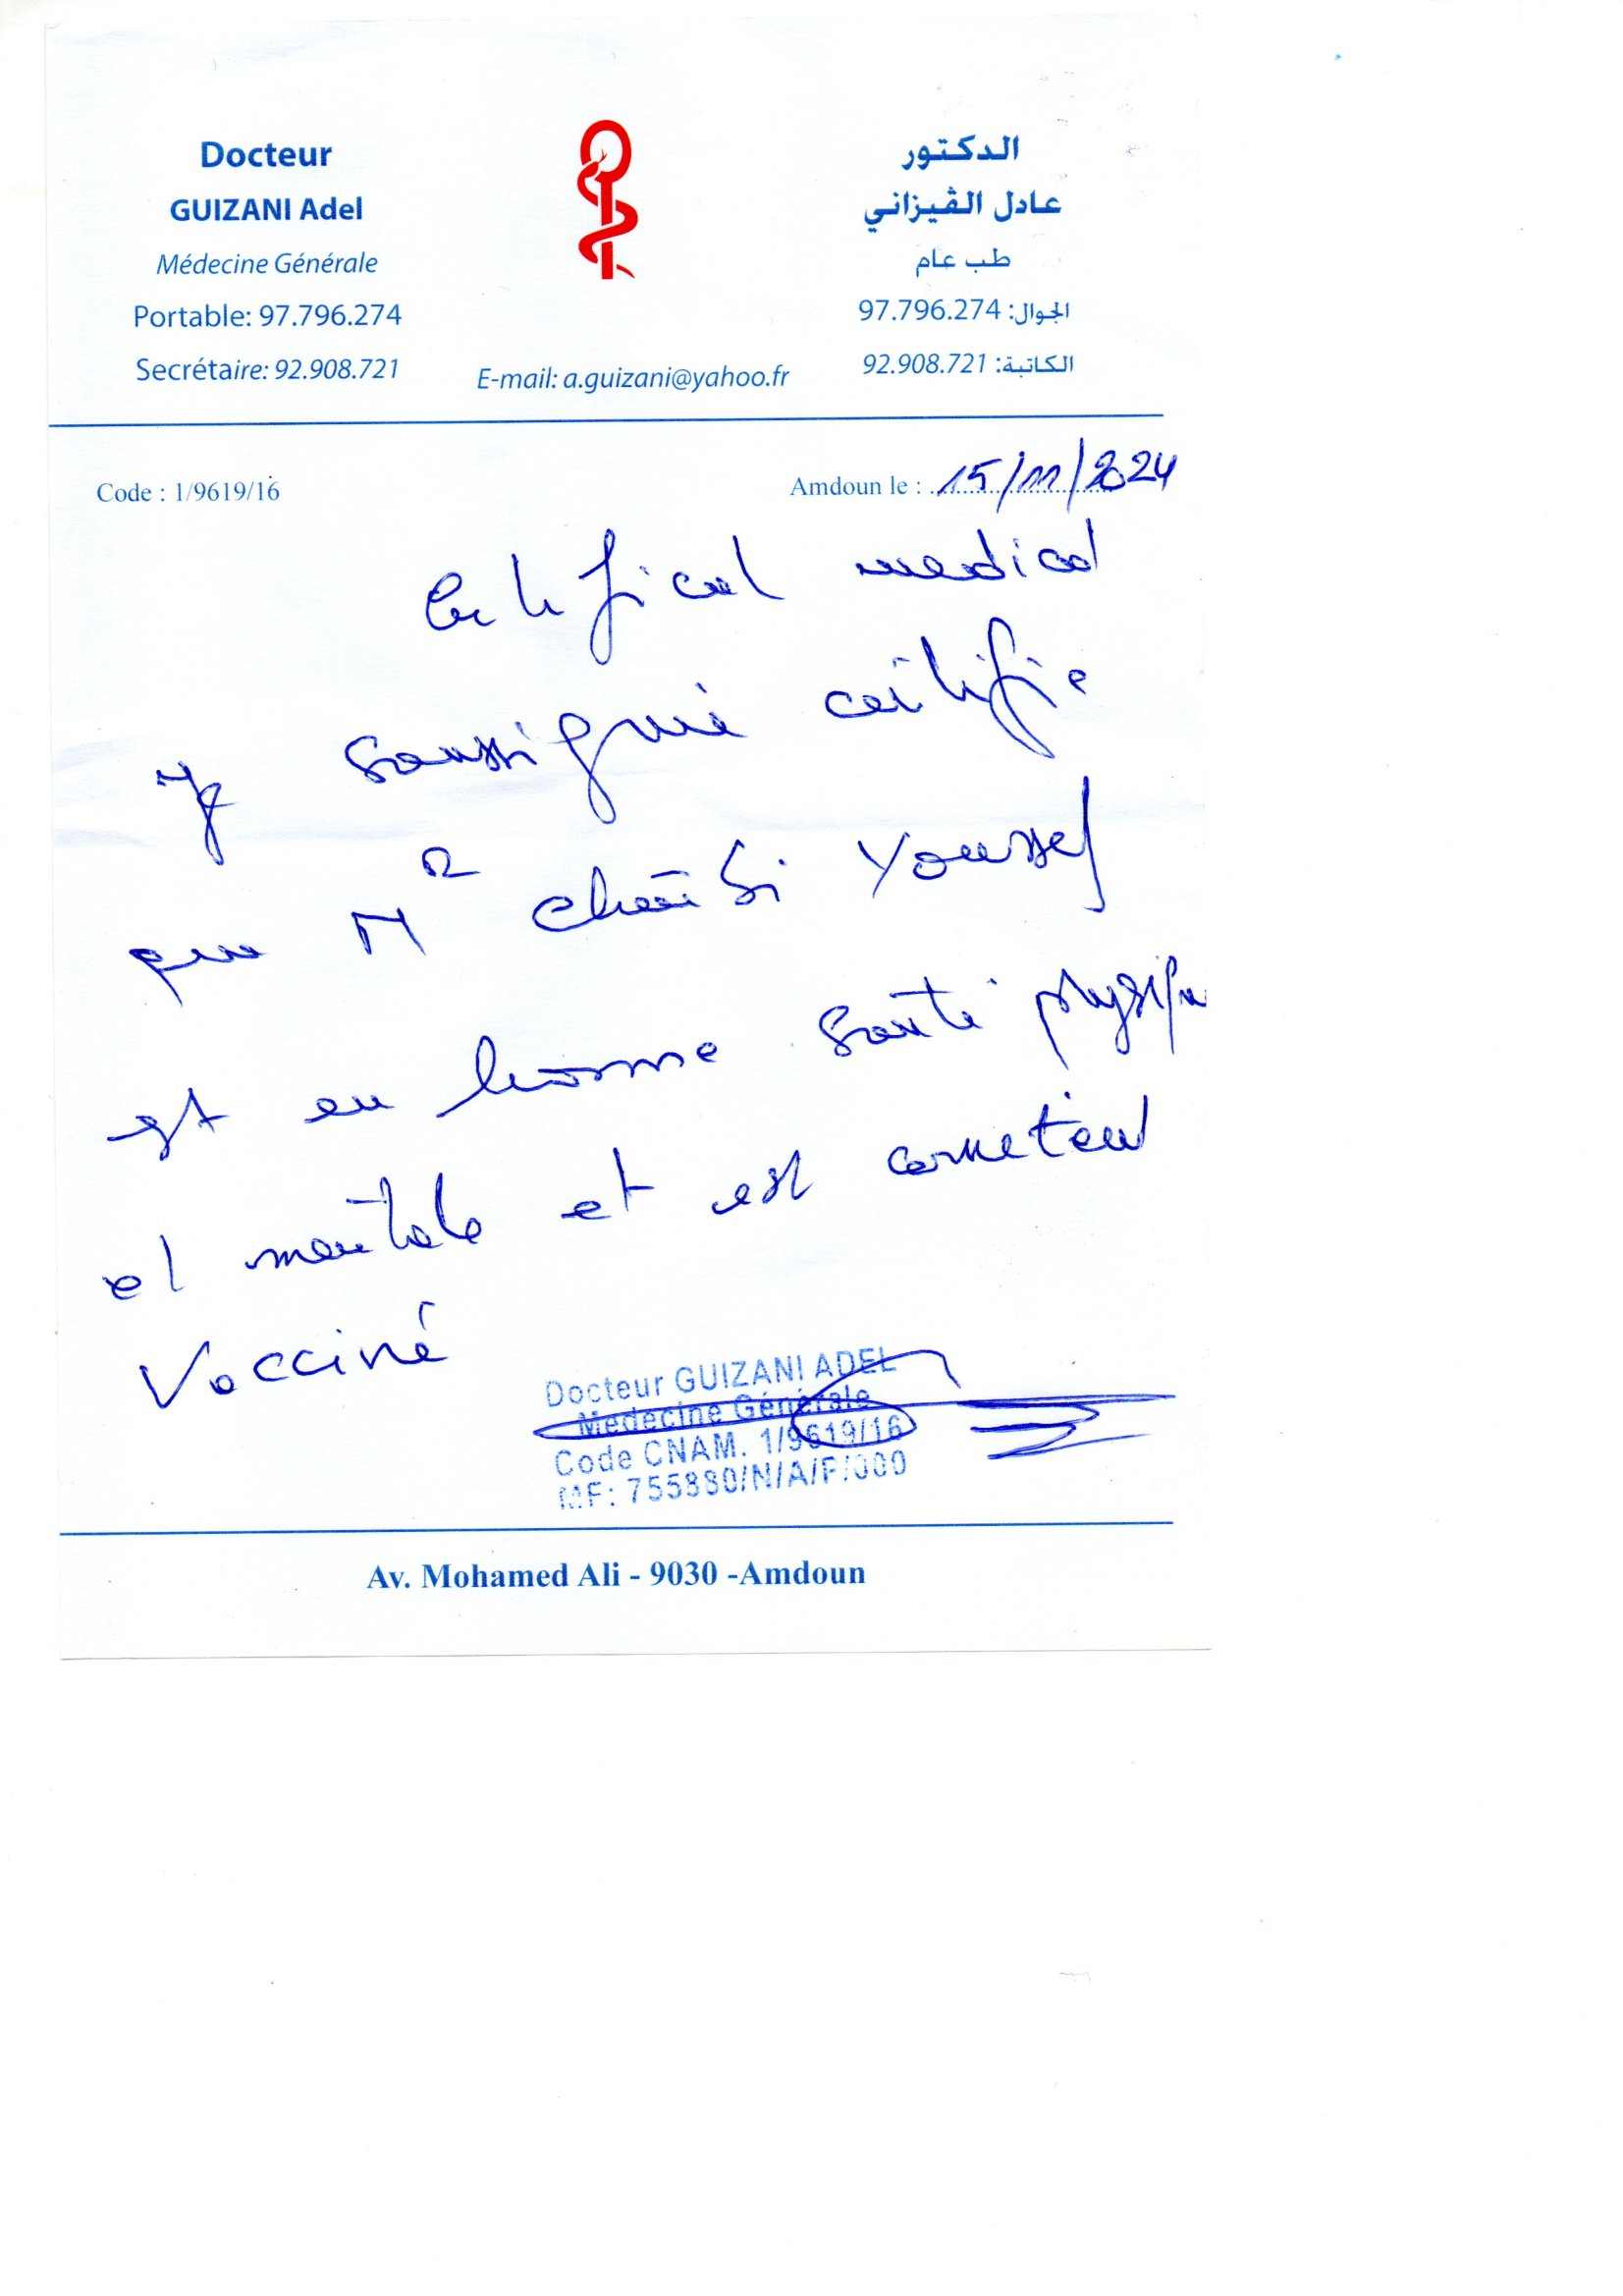 Docteur
GUIZANI Adel
Médecine Générale
Portable: 97.796.274
Secrétaire: 92.908.721
E-mail: a.guizani@yahoo.fr
الدكتور
عادل الڤيزاني
طب عام
الجوال: 97.796.274
الكاتبة: 92.908.721
Code : 1/9619/16
Amdoun le : 15/11/2024
Certificat medical
Je soussigné certifie
que Mr Youssef
est en bonne santé physique
et mentale et est correctement
Vacciné
Docteur GUIZANI ADEL
Médecine Générale
Code CNAM. 1/9619/16
MF: 755880/N/A/P/000
Av. Mohamed Ali - 9030 -Amdoun